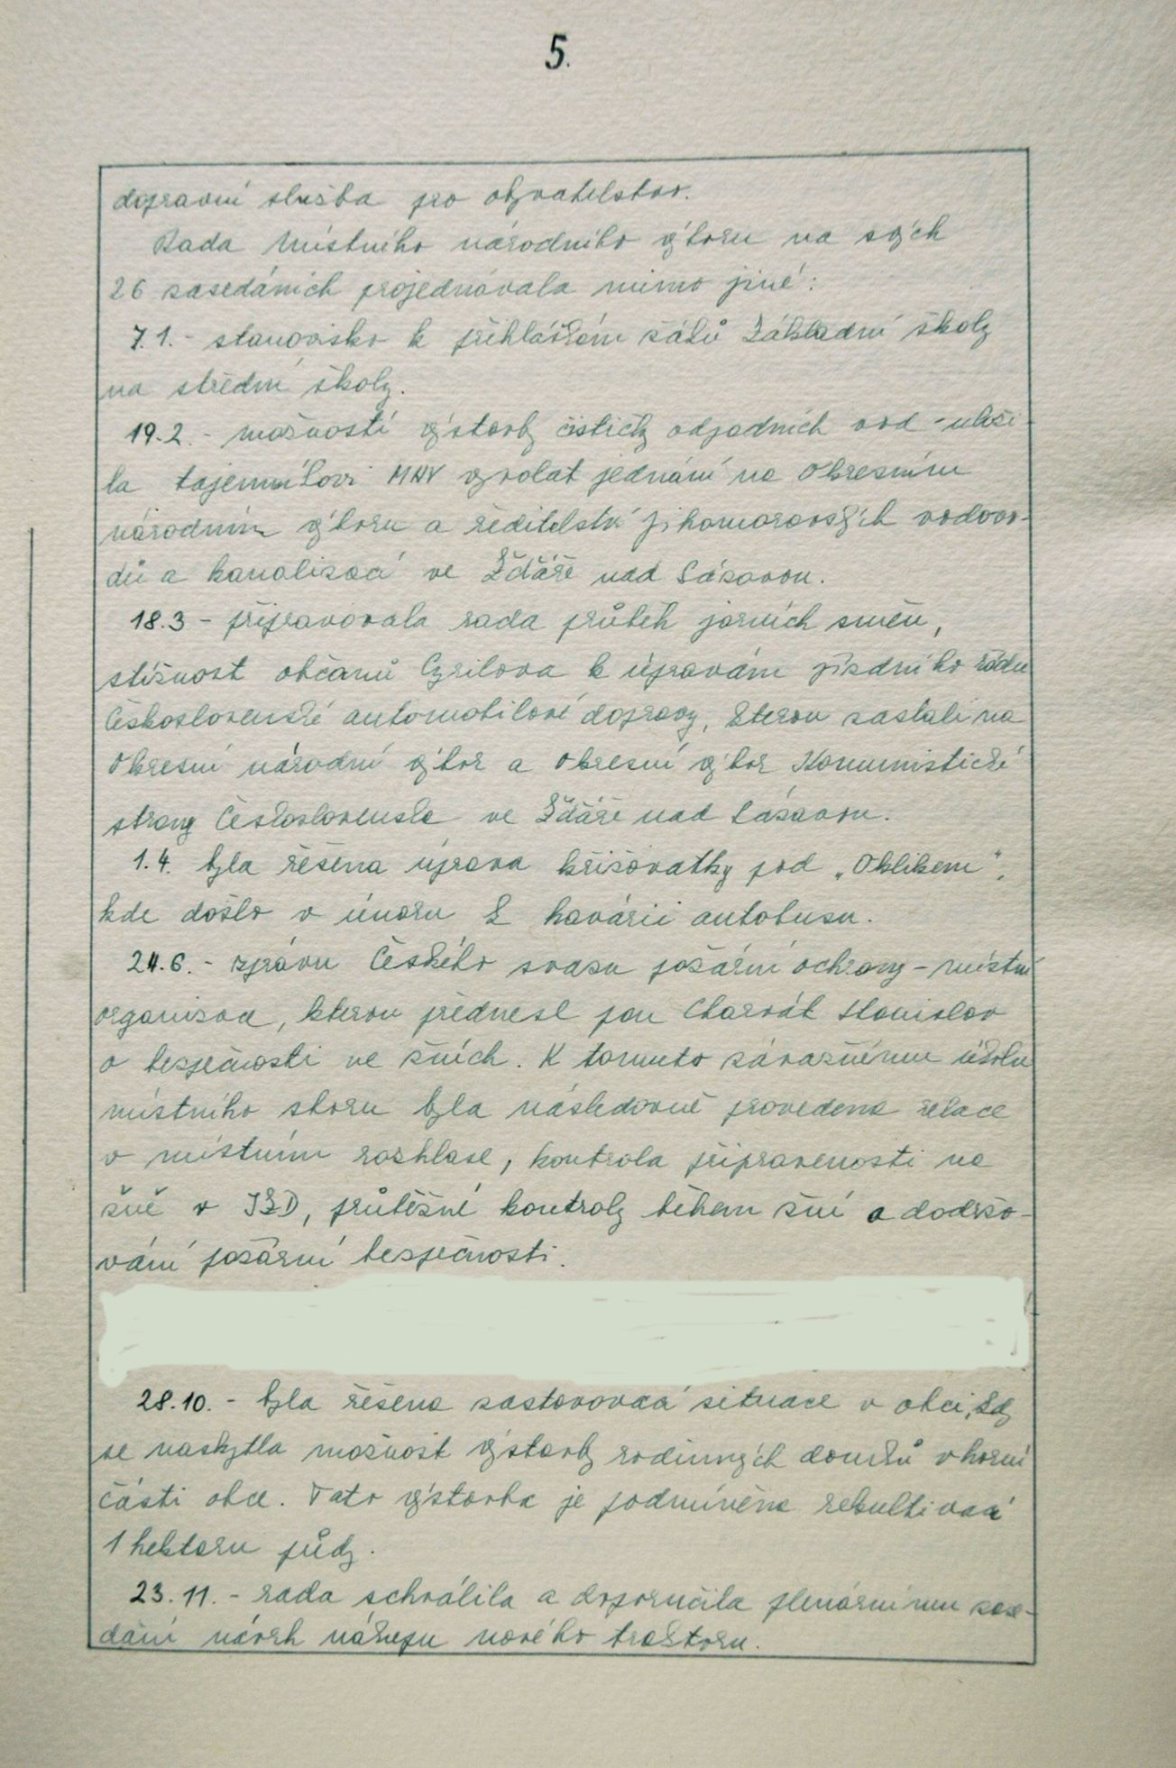 5.
dopravní služba pro obyvatelstvo.
Rada Místního národního výboru na svých
26 zasedáních projednávala mimo jiné:
7.1. - stanovisko k přihláškám žáků Základní školy
na střední školy.
19.2. - možností výstavby čističky odpadních vod - uloži-
la tajemníkovi MNV vyvolat jednání na Okresním
národním výboru a ředitelství Jihomoravských vodovo-
dů a kanalizací ve Žďáře nad Sázavou.
18.3 - připravovala rada průběh jarních směn,
stížnost občanů Cyrilova k úpravám jízdního řádu
Československé automobilové dopravy, kterou zaslali na
Okresní národní výbor a Okresní výbor Komunistické
strany Československa ve Žďáře nad Sázavou.
1.4. byla řešena úprava křižovatky pod „Oklikem",
kde došlo v únoru k havárii autobusu.
24.6. - zprávu Českého svazu požární ochrany - místní
organizace, kterou přednesl pan Charvát Stanislav
o bezpečnosti ve žních. K tomuto závažnému úkolu
místního sboru byla následovně provedena relace
v místním rozhlase, kontrola připravenosti na
žně v JZD, průběžné kontroly během žní a dodržo-
vání požární bezpečnosti.
28.10. - byla řešena zastavovací situace v obci, kdy
se naskytla možnost výstavby rodinných domků v horní
části obce. Tato výstavba je podmíněna rekultivací
1 hektaru půdy.
23.11. - rada schválila a doporučila plenárnímu zase-
dání návrh nákupu nového traktoru.